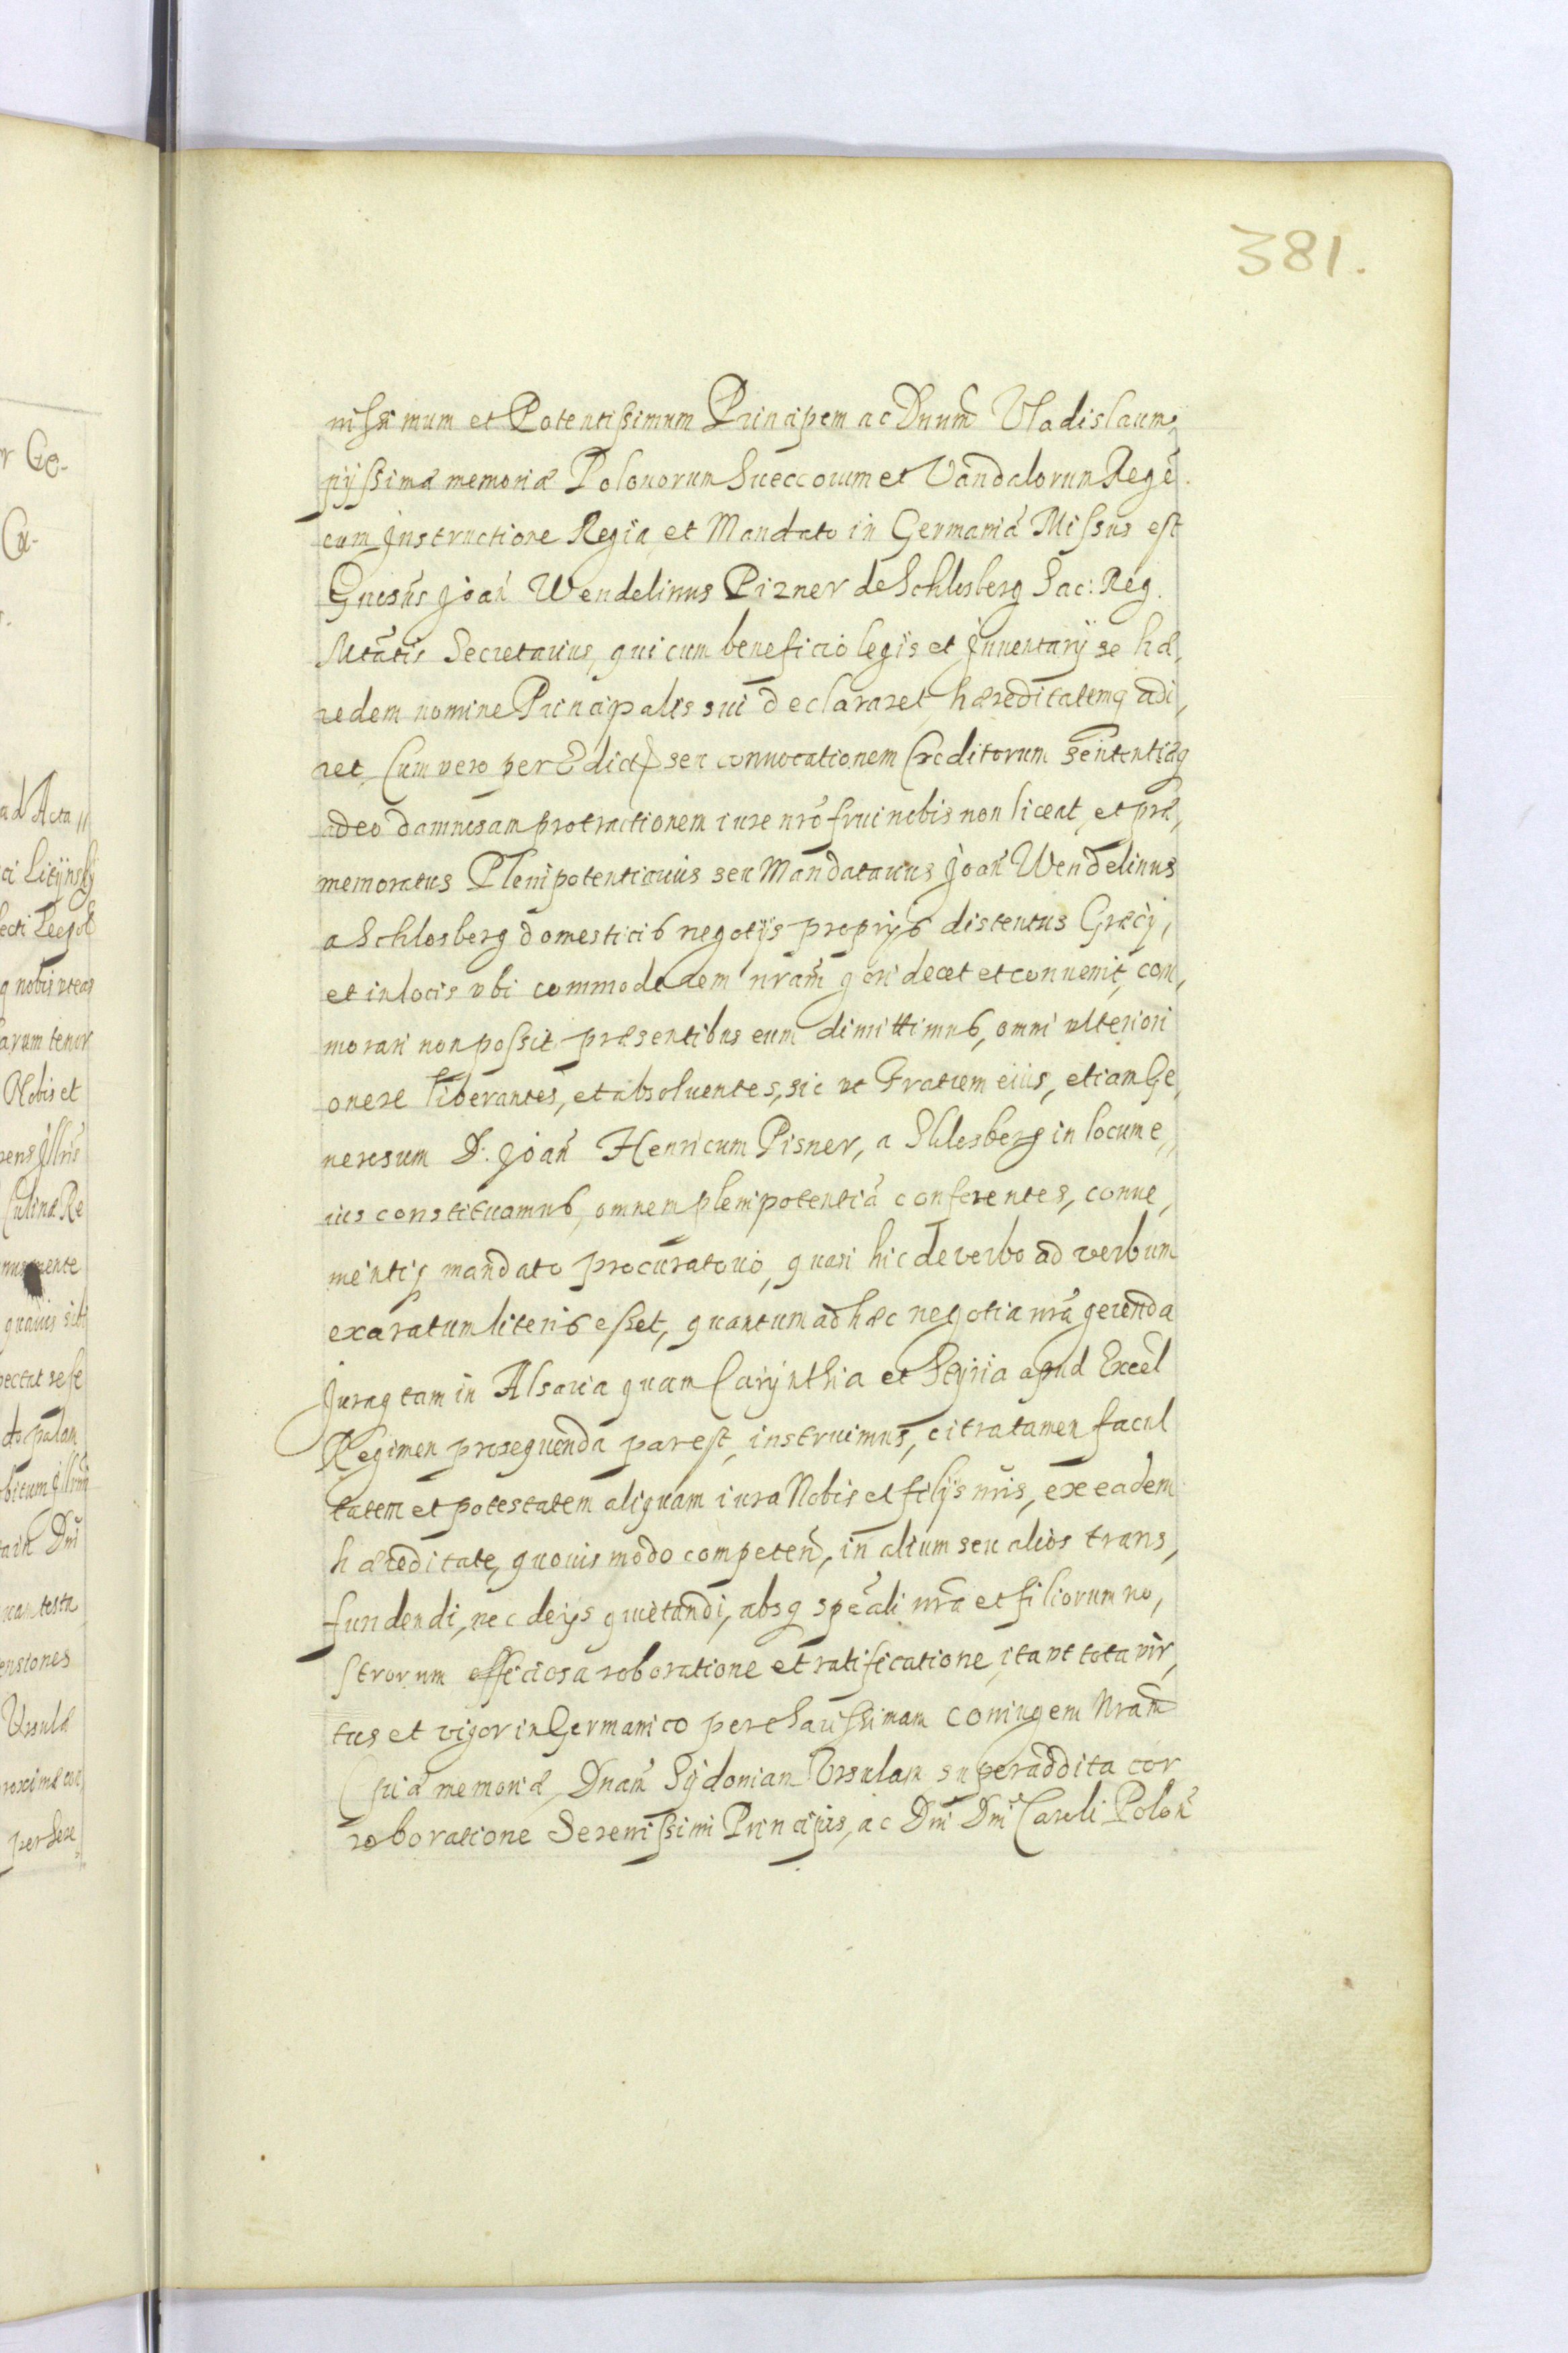 381.
nissimum et Potentissimum Principem ac Dnum̃ Vladislaum,
pijssimæ memoriæ Polonorum Sueccorum et Vandalorum Regē.
cum Jnstructione Regia et Mandato in Germaniã Missus est
Gnosus Joañ Wendelinus Pizner de Schlosberg Sac: Reg.
Mtatis Secretarius, qui cum beneficio legis et Jnuentarij se hæ,
redem nomine Principalis sui declararet, hæreditatemq adi,
ret, Cum vero per Edict seu conuocationem Creditorum sententiãq
adeo damnosam protractionem iure nrõ frui nobis non liceat, et præ,
memoratus Plenipotentiarius seu Mandatarius Joañ Wendelinus
a Schlosberg domesticis negotijs proprijs distentus Græcij,
et in locis vbi commode rem nram̃ geri decet et conuenit, com,
morari non possit præsentibus eum dimittimus, omni vlteriori
onere liberantes, et absoluentes, sic vt Fratrem eius, etiam Ge,
nerosum D. Joañ Henricum Pisner, a Shlosberg in locum e,,
ius constituamus, omnem plenipotentiã conferentes, conue,
nientiq mandato procuratorio, quasi hic de verbo ad verbum
exaratum literis esset, quantum ad hæc negotia nrã gerenda
Juraq tam in Alsacia quam Carijnthia et Stijria apud Excel
Regimen prosequenda par est, instruimus, citra tamen facul
tatem et potestatem aliquam iura Nobis et filijs nris, ex eadem
hæreditate, quouis modo competeñ, in alium seu alios trans,
fundendi, nec de ijs quietandi, absq speãli nrã et filiorum no,
strorum officiosa roboratione et ratificatione, ita vt tota vir,
tus et vigor in Germanico per charissimam Coniugem Nram̃
(piæ memoriæ, Dnam̃ Sijdoniam Vrsulam superaddita cor
roboratione Serenissimi Principis, ac Dni Dni Caroli Poloñ